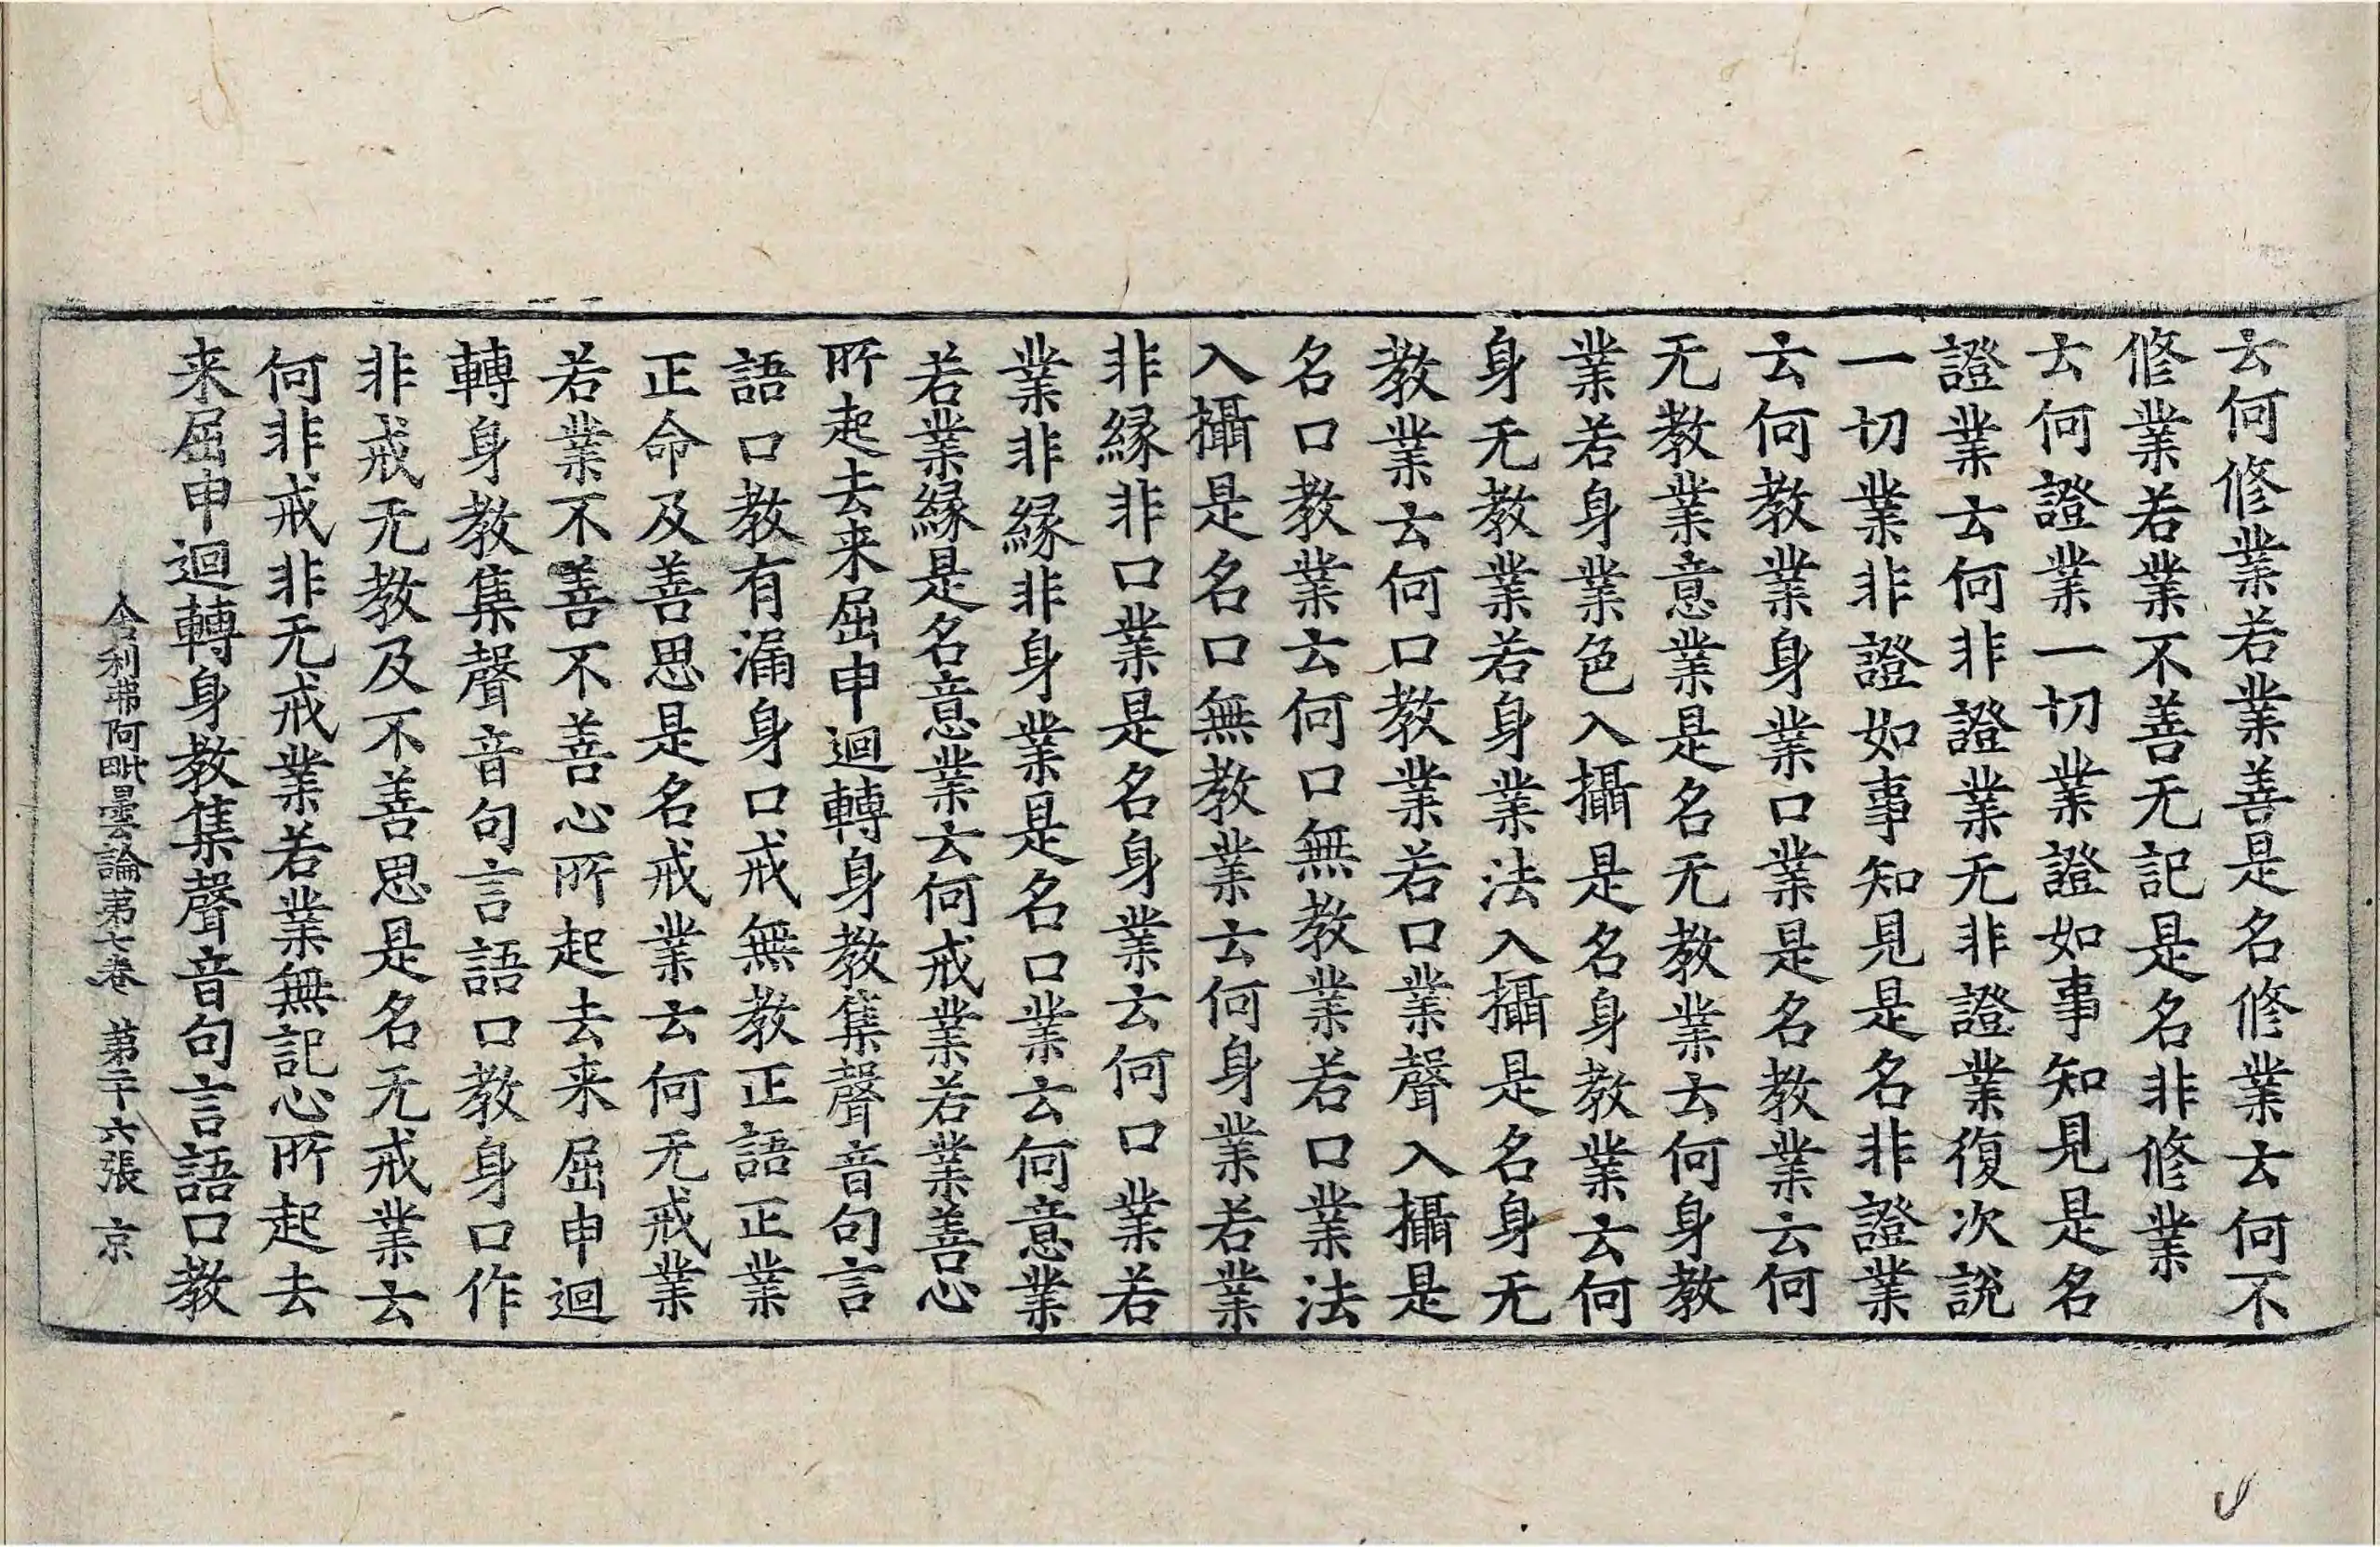 云何修業若業善是名修業云何不
修業若業不善无記是名非修業
云何證業一切業證如事知見是名
證業云何非證業无非證業復次說
一切業非證如事知見是名非證業
云何教業身業口業是名教業云何
无教業意業是名无教業云何身教
業若身業色入攝是名身教業云何
身无教業若身業法入攝是名身无
教業云何口教業若口業聲入攝是
名口教業云何口無教業若口業法
入攝是名口無教業云何身業若業
非緣非口業是名身業云何口業若
業非緣非身業是名口業云何意業
若業緣是名意業云何戒業若業善心
所起去来屈申迴轉身教集聲音句言
語口教有漏身口戒無教正語正業
正命及善思是名戒業云何无戒業
若業不善不善心所起去来屈申迴
轉身教集聲音句言語口教身口作
非戒无教及不善思是名无戒業云
何非戒非无戒業若業無記心所起去
来屈申迴轉身教集聲音句言語口教
舍利弗阿毗曇論第七卷 第二十六張 京